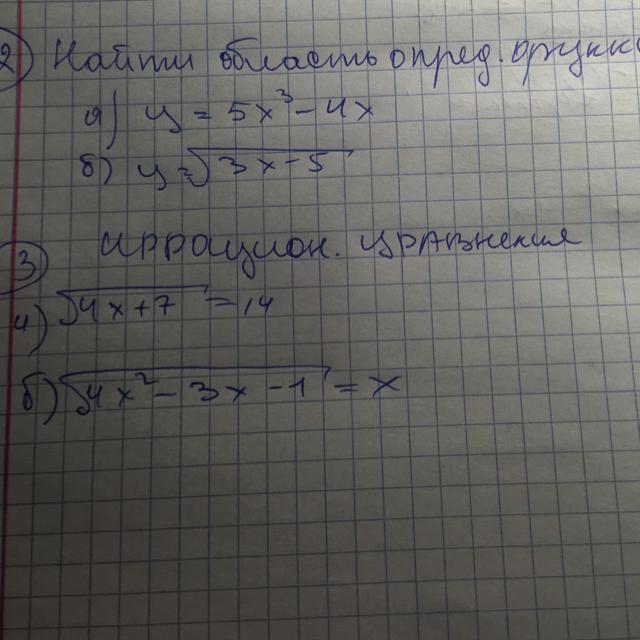 2) Найти область опред. функци
а) y = 5x³ - 4x
б) y = √3x - 5
3 иррацион. уравнения
а) √4x + 7 = 14
б) √4x² - 3x - 1 = x